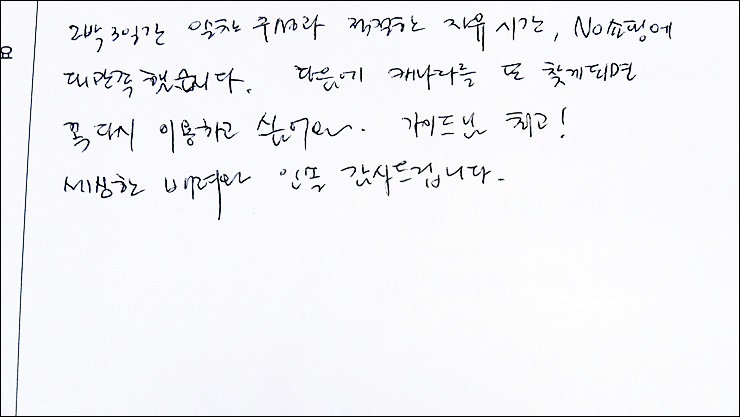 2박 3일간 알찬 구성과 적절한 자유시간, No쇼핑에
대만족했습니다. 다음에 캐나다를 또 찾게되면
꼭 다시 이용하고 싶어요. 가이드님 최고!
세심한 배려와 인솔 감사드립니다.
요